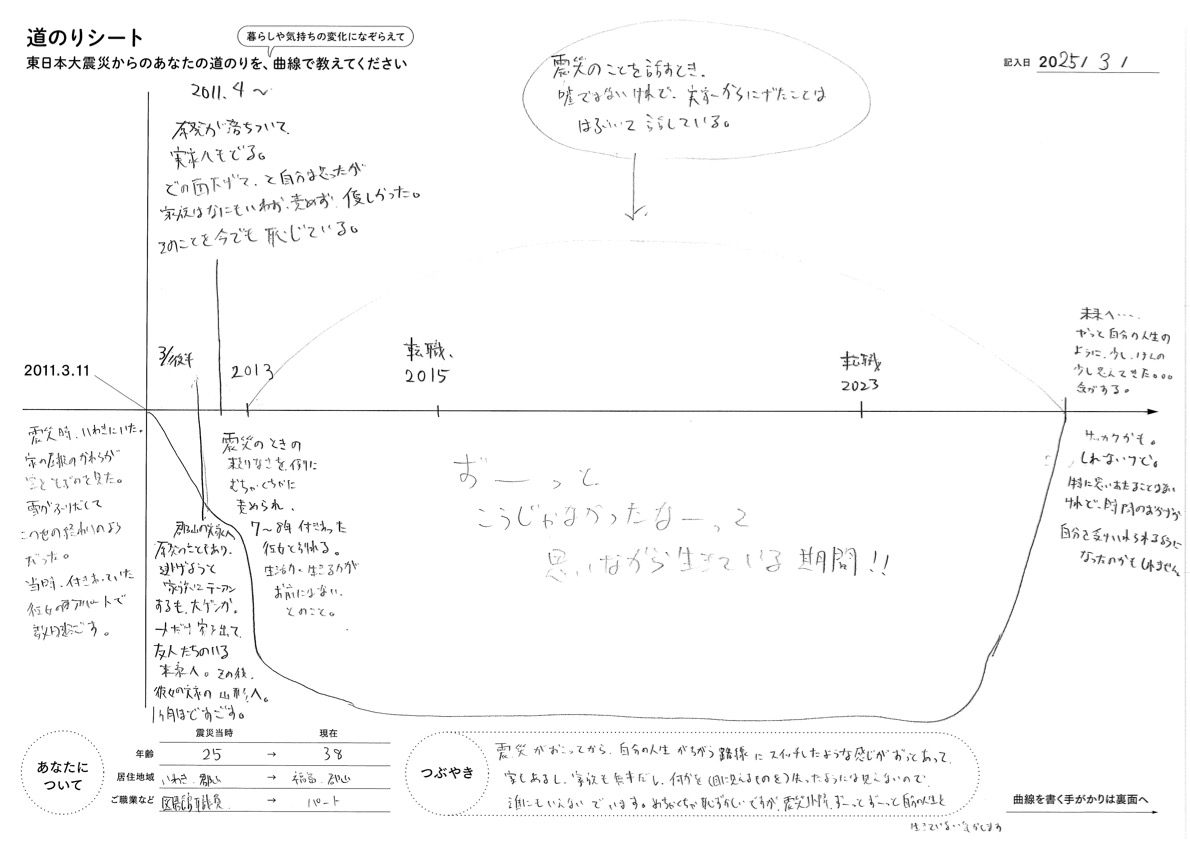 道のりシート
暮らしや気持ちの変化になぞらえて
東日本大震災からのあなたの道のりを、曲線で教えてください
記入日 2025/ 3/
2011.4〜
原発が落ちついて、
実家へもどる。
どの面さげて、と自分は思ったが
家族はなにもいわず、責めず、優しかった。
そのことを今でも恥じている。
震災のことを話すとき、
嘘ではないけれど、実家からにげたことは
はぶいて話している。
2011.3.11
3/後半
2013
転職、
2015
転職
2023
未来へ……
やっと自分の人生の
ように、少し、ほんの
少し思えてきた。。。
気がする。
震災時、いわきにいた。
家の屋根のかわらが
とぶのを見た。
雪がふりだして
この世の終わりのよう
だった。
当時、付き合っていた
彼女のアパートで
数日過ごす。
郡山の実家へ
原発のこともあり、
逃げようと
家族に
するも、大ゲンカ。
一人だけ家を出て、
友人たちのいる
東京へ。その後、
彼女の実家の山形へ。
1ヶ月ほどすごす。
震災のときの
頼りなさを例に
むちゃくちゃに
責められ、
7〜8年付き合った
彼女と別れる。
生活力、生きる力が
お前にはない、
とのこと。
ずーっと、
こうじゃなかったなーって
思いながら生きている期間!!
サッカクかも。
しれないけど。
特に思いあたることはない
けれど、時間のおかげか
自分を受けいれられるように
なったのかもしれません
あなたに
ついて
震災当時 現在
年齢 25 → 38
居住地域 いわき、郡山 → 福島、郡山
ご職業など 図書館職員 → パート
つぶやき
震災がおこってから、自分の人生がちがう路線にスイッチしたような感じがずっとあって、
家もあるし、家族も無事だし、何かを(目に見えるものを)失ったようには見えないので
誰にもいえないでいます。めちゃくちゃ恥ずかしいですが、震災以降、ずーっとずーっと自分の人生を
生きていない気がします
曲線を書く手がかりは裏面へ